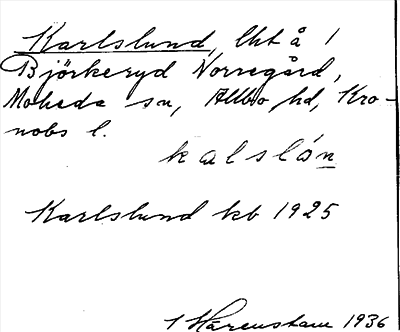 Karlslund, lht å 1
Björkeryd Norregård,
Moheda sn, Allbo hd, Kro-
nobs l.
kalslón
Karlslund kb 1925
1936